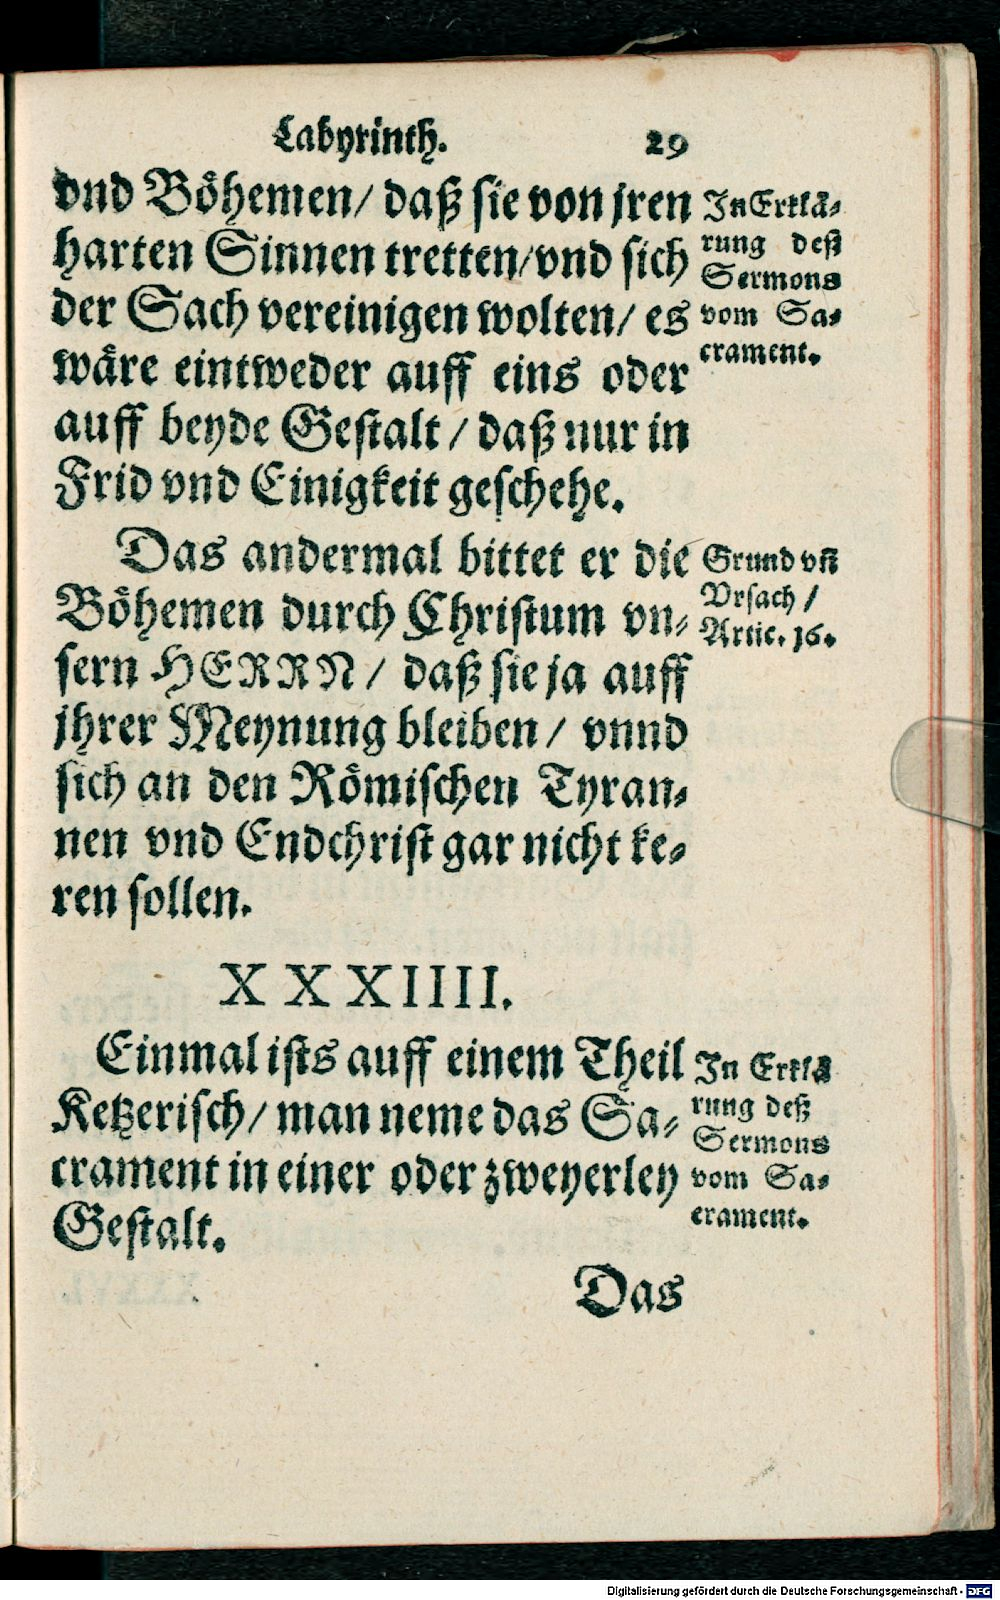 Labyrinth. 29
vnd Böhemen/ daß sie von jren
harten Sinnen tretten/vnd sich
der Sach vereinigen wolten/ es
wäre eintweder auff eins oder
auff beyde Gestalt / daß nur in
Frid vnd Einigkeit geschehe.
In Erklä-
rung deß
Sermons
vom Sa-
crament.
Das andermal bittet er die
Böhemen durch Christum vn-
sern HERRN / daß sie ja auff
jhrer Meynung bleiben / vnnd
sich an den Römischen Tyran-
nen vnd Endchrist gar nicht ke-
ren sollen.
Grund vñ
Vrsach /
Artic. 16.
XXXIIII.
Einmal ists auff einem Theil
Ketzerisch/ man neme das Sa-
crament in einer oder zweyerley
Gestalt.
In Erklä
rung deß
Sermons
vom Sa-
crament.
Das
Digitalisierung gefördert durch die Deutsche Forschungsgemeinschaft - DFG